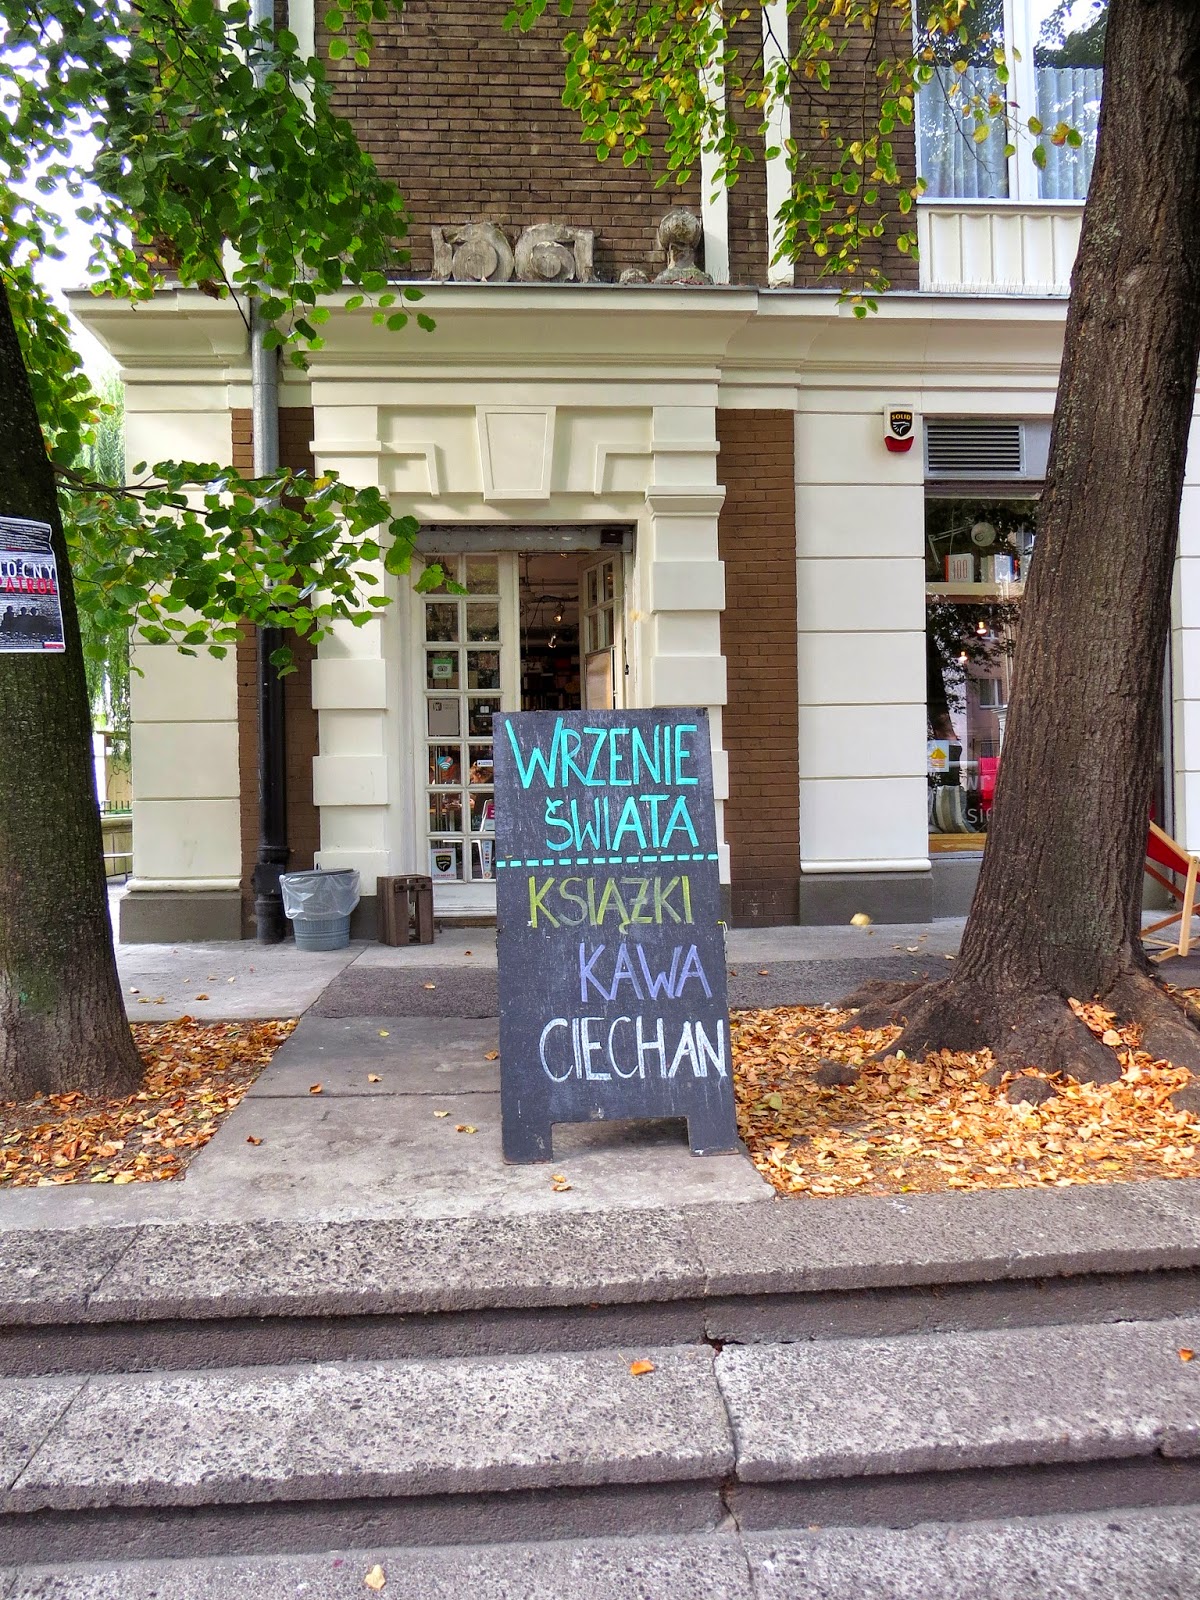 SOLID
100
WRZENIE
ŚWIATA
KSIĄŻKI
KAWA
CIECHAN